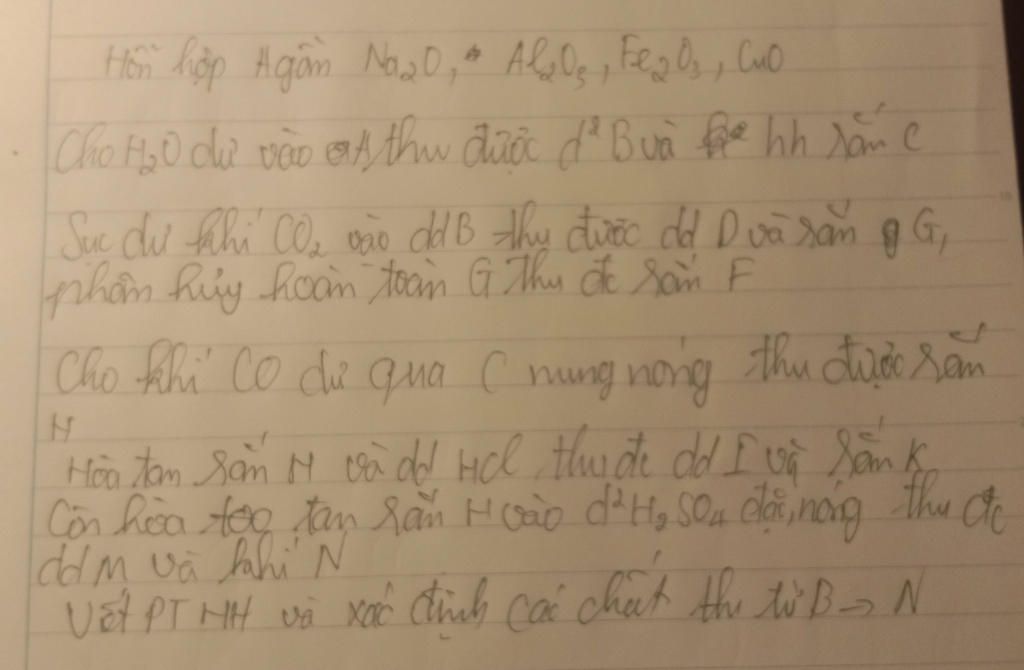 Hỗn hợp A gồm Na₂O, Al₂O₃, Fe₂O₃, CuO
Cho H₂O dư vào A thu được d² B và hh rắn C
Sục dư khí CO₂ vào dd B thu được dd D và rắn G,
phân hủy hoàn toàn G thu đc rắn F
Cho khí CO dư qua C nung nóng thu được rắn
H
Hòa tan rắn H và dd HCl thu đc dd I và rắn K
Còn hòa tan rắn H vào d² H₂SO₄ đặc, nóng thu đc
dd M và khí N
Viết PTHH và xác định các chất thu từ B → N